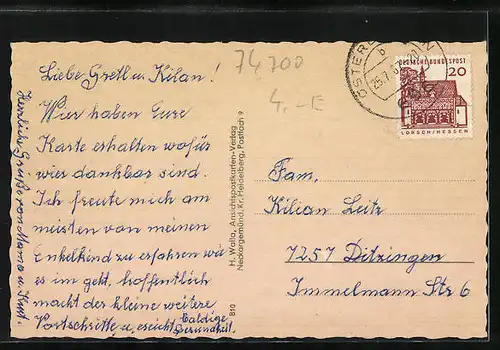 Liebe Gretl u. Kilian!
Wier haben Eure
Karte erhalten wofür
wier dankbar sind.
Ich freute mich am
meisten von meinen
Enkelkind zu erfahren wie
es im geht, hoffentlich
macht der kleine weitere
Vortschritte u.
Baldige
Gesundheit.
Herzliche Grüße von Mama u. Kurt.
74700
4,-E
H. Walla, Ansichtspostkarten-Verlag
Neckargemünd, Kr. Heidelberg, Postfach 9
B10
DEUTSCHE BUNDESPOST
20
LORSCH/HESSEN
Fam.
Kilian Leitz
7257 Ditzingen
Immelmann Str 6